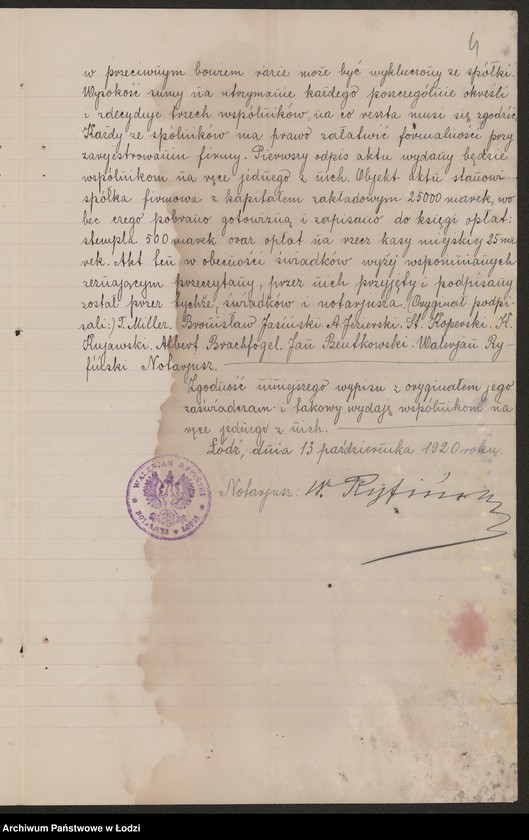 4
w przeciwnym bowiem razie może być wykluczony ze spółki.
Wysokość sumy na utrzymanie każdego poszczególnie określi
i zdecyduje trzech wspólników, na co reszta musi się zgodzić
Każdy ze spólników ma prawo załatwić formalności przy
zarejestrowaniu firmy. Pierwszy odpis aktu wydany będzie
wspólnikom na ręce jednego z nich. Objekt aktu stanowi
spółka firmowa z kapitałem zakładowym 25000 marek, wo
bec czego pobrano gotowizną i zapisano do księgi opłat:
stempla 500 marek oraz opłat na rzecz kasy miejskiej 25 ma
rek. Akt ten w obecności świadków wyżej wspomnianych
zeznającym przeczytany, przez nich przyjęty i podpisany
został przez tychże, świadków i notarjusza. (Oryginał podpi-
sali:) T. Miller. Bronisław Jasiński. A. Jezierski. St. Koperski. K.
Kujawski. Albert Brachfogel. Jan Bentkowski. Walerjan Ry-
fiński Notarjusz.
Zgodność niniejszego wypisu z oryginałem jego
zaświadczam i takowy wydaję wspólnikom na
ręce jednego z nich.
Łódź, dnia 13 października 1920 roku.
Notarjusz: W. Ryfiński
WALERJAN RYFIŃSKI
NOTARJUSZ ŁÓDŹ
Archiwum Państwowe w Łodzi